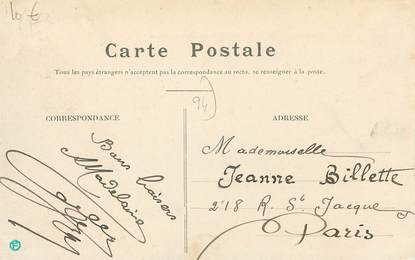 10 €
Carte Postale
Tous les pays étrangers n'acceptent pas la correspondance au recto, se renseigner à la poste.
94
CORRESPONDANCE
ADRESSE
Bons baisers
Madelaine
Mademoiselle
Jeanne Billette
218 R. St Jacques
Paris